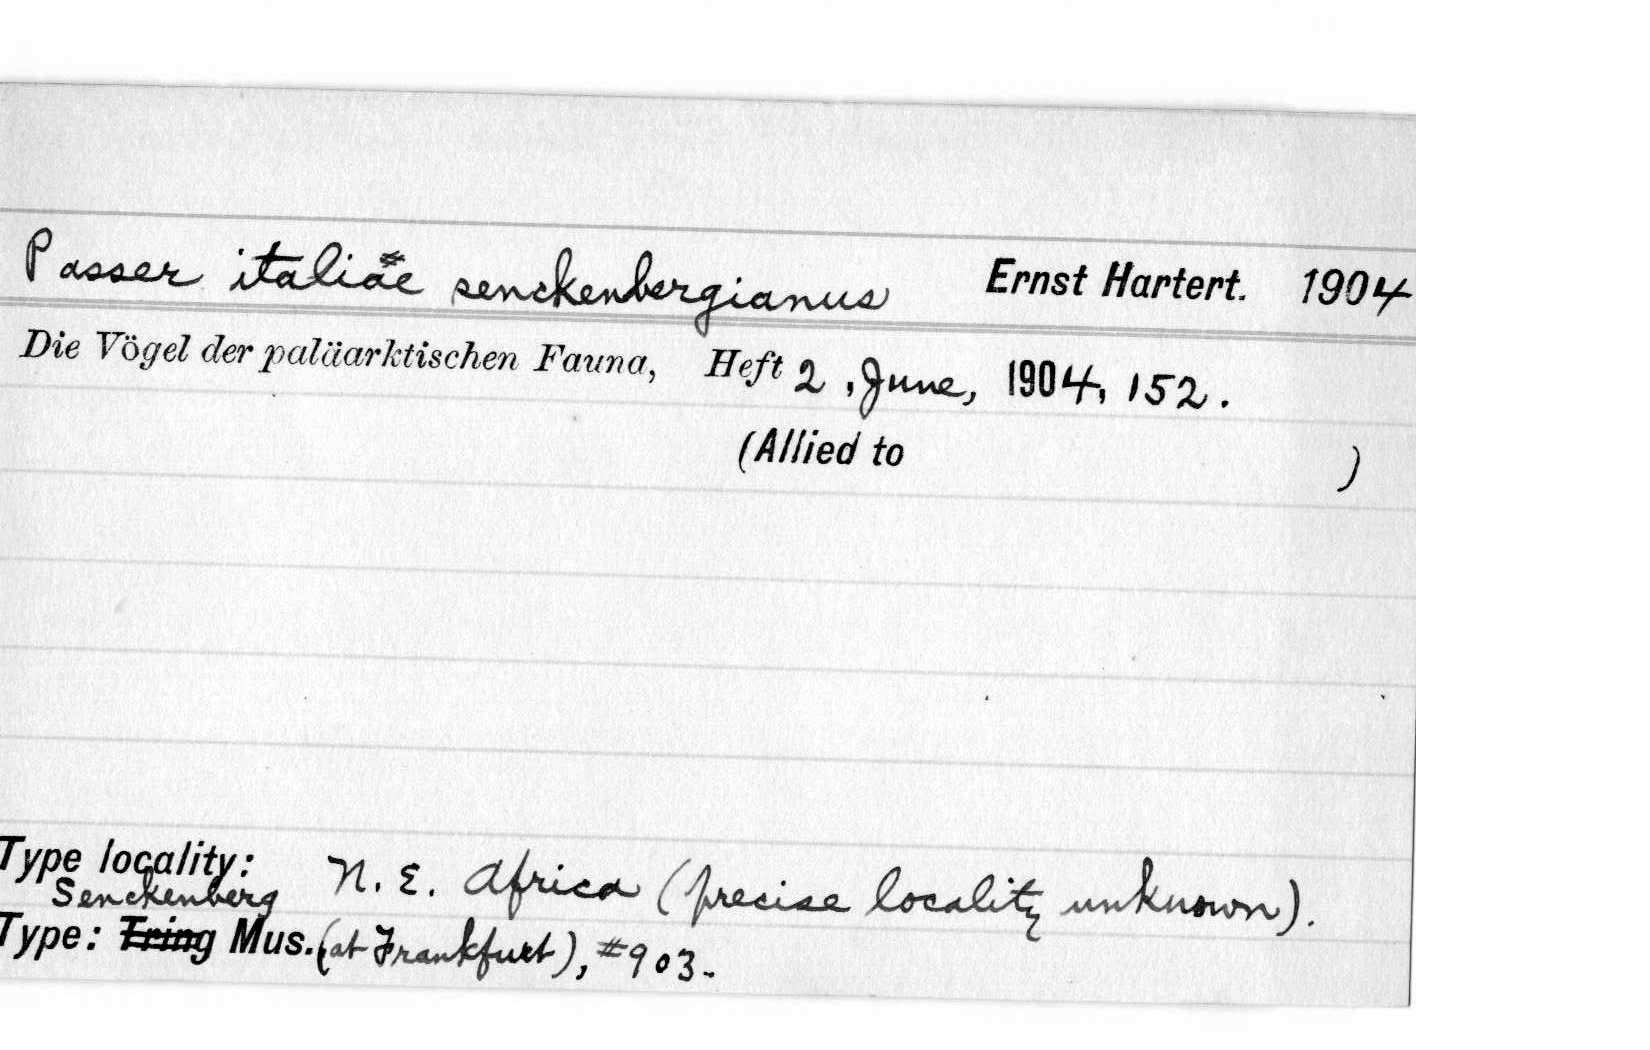 Passer italiae senckenbergianus Ernst Hartert. 1904
Die Vögel der paläarktischen Fauna, Heft 2, June, 1904, 152.
(Allied to )
Type locality: N. E. Africa (precise locality unknown).
Senckenberg
Type: Tring Mus. (at Frankfurt), #903.